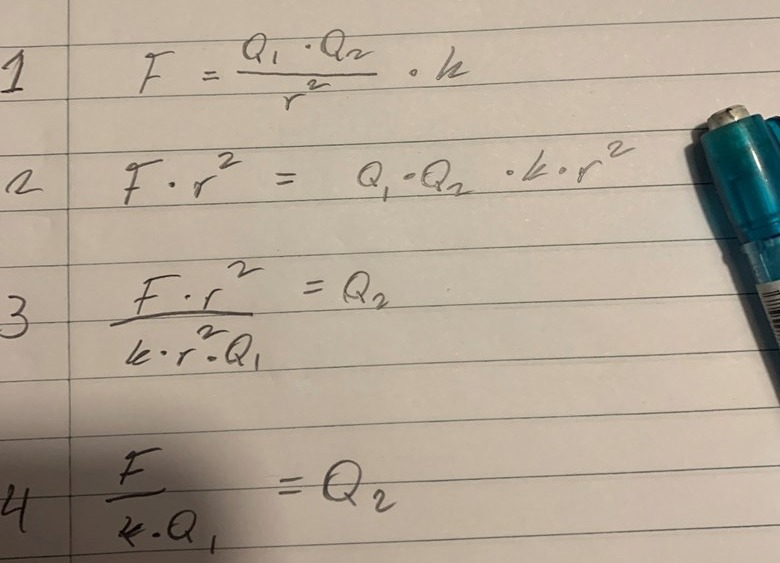 1 F = Q₁ · Q₂ / r² · k
2 F · r² = Q₁ · Q₂ · k · r²
3 F · r² / k · r² · Q₁ = Q₂
4 F / k · Q₁ = Q₂